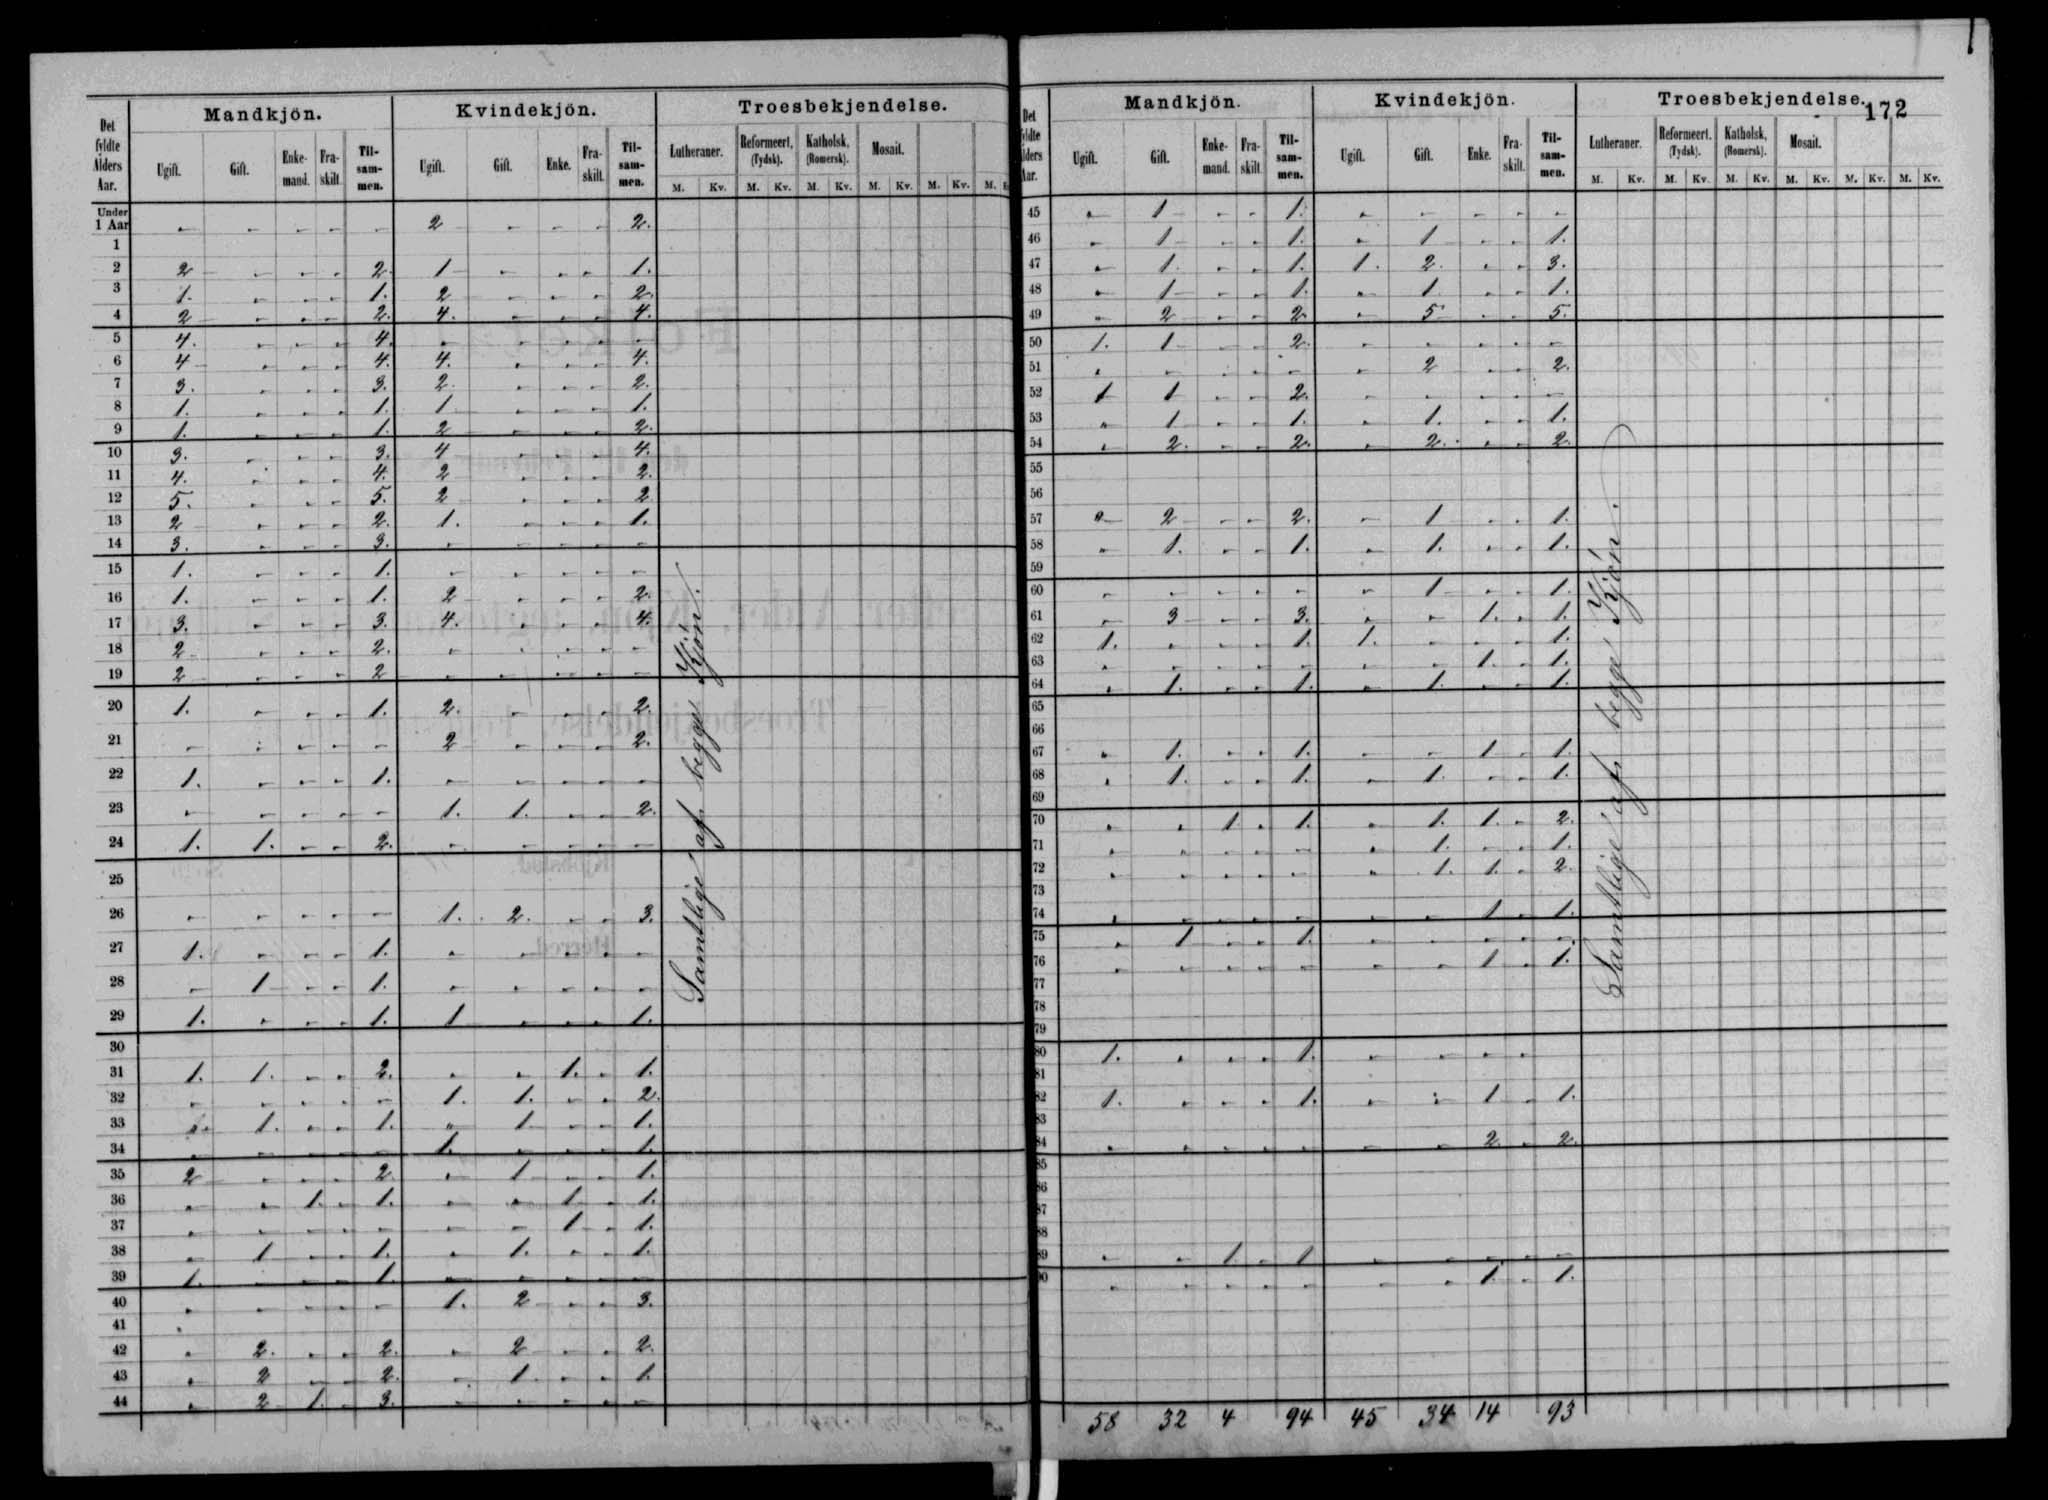 Det fyldte Alders Aar. | Mandkjön. | Kvindekjön. | Troesbekjendelse.
Ugift. | Gift. | Enke-mand. | Fra-skilt. | Til-sam-men. | Ugift. | Gift. | Enke. | Fra-skilt. | Til-sam-men. | Lutheraner. | Reformeert, (Tydsk). | Katholsk, (Romersk). | Mosait.
M. Kv. M. Kv. M. Kv. M. Kv. M. Kv. M.
Under 1 Aar | - | - | - | - | - | 2 | - | - | - | 2.
1
2 | 2 | - | - | - | 2. | 1 | - | - | - | 1.
3 | 1. | - | - | - | 1. | 2 | - | - | - | 2.
4 | 2 | - | - | - | 2. | 4. | - | - | - | 4.
5 | 4. | - | - | - | 4. | - | - | - | - | -
6 | 4 | - | - | - | 4. | 4. | - | - | - | 4.
7 | 3. | - | - | - | 3. | 2. | - | - | - | 2.
8 | 1. | - | - | - | 1. | 1 | - | - | - | 1.
9 | 1. | - | - | - | 1. | 2 | - | - | - | 2.
10 | 3. | - | - | - | 3. | 4 | - | - | - | 4.
11 | 4. | - | - | - | 4. | 2 | - | - | - | 2.
12 | 5. | - | - | - | 5. | 2 | - | - | - | 2
13 | 2 | - | - | - | 2. | 1. | - | - | - | 1.
14 | 3. | - | - | - | 3. | - | - | - | - | -
15 | 1. | - | - | - | 1. | - | - | - | - | -
16 | 1. | - | - | - | 1. | 2 | - | - | - | 2.
17 | 3. | - | - | - | 3. | 4. | - | - | - | 4.
18 | 2 | - | - | - | 2. | - | - | - | - | -
19 | 2 | - | - | - | 2 | - | - | - | - | -
20 | 1. | - | - | - | 1. | 2. | - | - | - | 2.
21 | - | - | - | - | - | 2 | - | - | - | 2.
22 | 1. | - | - | - | 1. | - | - | - | - | -
23 | - | - | - | - | - | 1. | 1. | - | - | 2.
24 | 1. | 1. | - | - | 2. | - | - | - | - | -
25
26 | - | - | - | - | - | 1. | 2. | - | - | 3.
27 | 1. | - | - | - | 1. | - | - | - | - | -
28 | - | 1 | - | - | 1. | - | - | - | - | -
29 | 1. | - | - | - | 1. | 1 | - | - | - | 1.
30
31 | 1. | 1. | - | - | 2. | - | - | 1. | - | 1.
32 | - | - | - | - | - | 1. | 1. | - | - | 2.
33 | - | 1. | - | - | 1. | - | 1 | - | - | 1.
34 | - | - | - | - | - | 1. | - | - | - | 1.
35 | 2 | - | - | - | 2. | - | 1 | - | - | 1.
36 | - | - | 1. | - | 1. | - | - | 1 | - | 1.
37 | - | - | - | - | - | - | - | 1 | - | 1.
38 | - | 1 | - | - | 1. | - | 1. | - | - | 1.
39 | 1. | - | - | - | 1. | - | - | - | - | -
40 | - | - | - | - | - | 1. | 2 | - | - | 3.
41
42 | - | 2. | - | - | 2. | - | 2 | - | - | 2.
43 | - | 2 | - | - | 2. | - | 1. | - | - | 1.
44 | - | 2 | 1. | - | 3. | - | - | - | - | -
Samtlige af begge Kjön.
172
Det fyldte Alders Aar. | Mandkjön. | Kvindekjön. | Troesbekjendelse.
Ugift. | Gift. | Enke-mand. | Fra-skilt. | Til-sam-men. | Ugift. | Gift. | Enke. | Fra-skilt. | Til-sam-men. | Lutheraner. | Reformeert. (Tydsk). | Katholsk, (Romersk). | Mosait.
M. Kv. M. Kv. M. Kv. M. Kv. M. Kv. M. Kv.
45 | - | 1 | - | - | 1. | - | - | - | - | -
46 | - | 1 | - | - | 1. | - | 1 | - | - | 1.
47 | - | 1. | - | - | 1. | 1. | 2. | - | - | 3.
48 | - | 1 | - | - | 1. | - | 1 | - | - | 1.
49 | - | 2 | - | - | 2. | - | 5 | - | - | 5.
50 | 1. | 1 | - | - | 2. | - | - | - | - | -
51 | - | - | - | - | - | - | 2 | - | - | 2.
52 | 1 | 1 | - | - | 2. | - | - | - | - | -
53 | - | 1 | - | - | 1. | - | 1. | - | - | 1.
54 | - | 2. | - | - | 2. | - | 2. | - | - | 2.
55
56
57 | - | 2 | - | - | 2. | - | 1 | - | - | 1.
58 | - | 1. | - | - | 1. | - | 1. | - | - | 1.
59
60 | - | - | - | - | - | - | 1 | - | - | 1.
61 | - | 3 | - | - | 3. | - | - | 1. | - | 1.
62 | 1. | - | - | - | 1. | 1. | - | - | - | 1.
63 | - | - | - | - | - | - | - | 1. | - | 1.
64 | - | 1. | - | - | 1. | - | 1. | - | - | 1.
65
66
67 | - | 1. | - | - | 1. | - | - | 1 | - | 1.
68 | - | 1. | - | - | 1. | - | 1. | - | - | 1.
69
70 | - | - | 1. | - | 1. | - | 1. | 1. | - | 2.
71 | - | - | - | - | - | - | 1. | - | - | 1.
72 | - | - | - | - | - | - | 1. | 1. | - | 2.
73
74 | - | - | - | - | - | - | - | 1 | - | 1.
75 | - | 1 | - | - | 1. | - | - | - | - | -
76 | - | - | - | - | - | - | - | 1 | - | 1.
77
78
79
80 | 1. | - | - | - | 1. | - | - | - | -
81
82 | 1. | - | - | - | 1. | - | - | 1 | - | 1.
83
84 | - | - | - | - | - | - | - | 2. | - | 2.
85
86
87
88
89 | - | - | 1. | - | 1 | - | - | - | - | -
90 | - | - | - | - | - | - | - | 1. | - | 1.
58 | 32 | 4 | 94 | 45 | 34 | 14 | 93
Samtlige af begge Kjön.